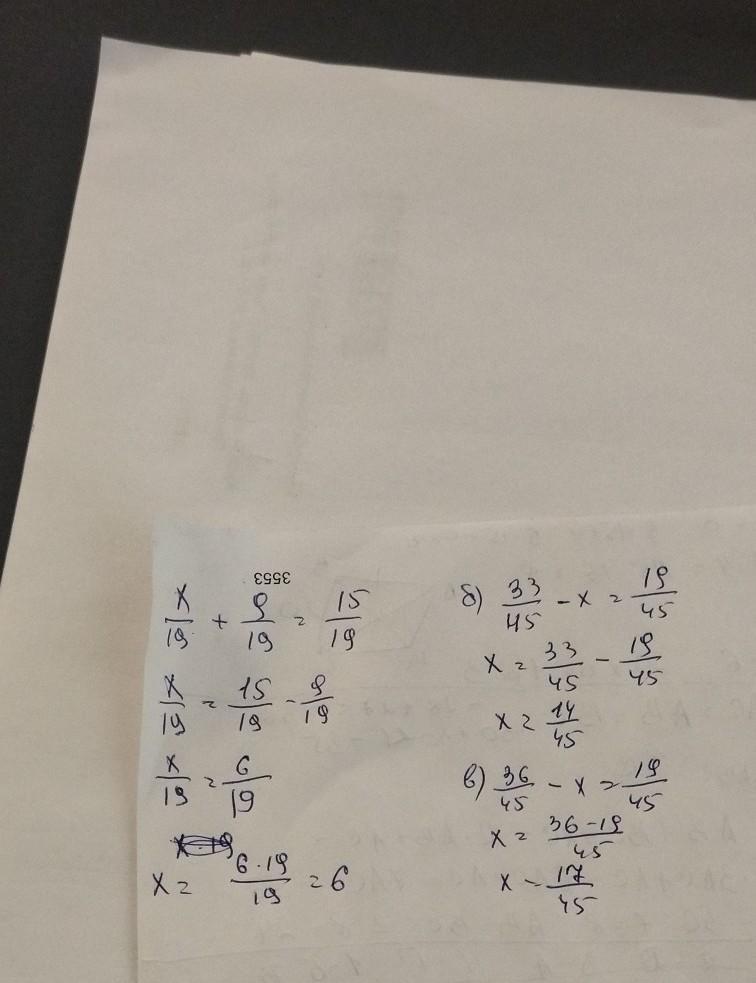 3553
x/19 + 9/19 = 15/19
x/19 = 15/19 - 9/19
x/19 = 6/19
x = 6·19/19 = 6
б) 33/45 - x = 19/45
x = 33/45 - 19/45
x = 14/45
в) 36/45 - x = 19/45
x = 36-19/45
x - 17/45